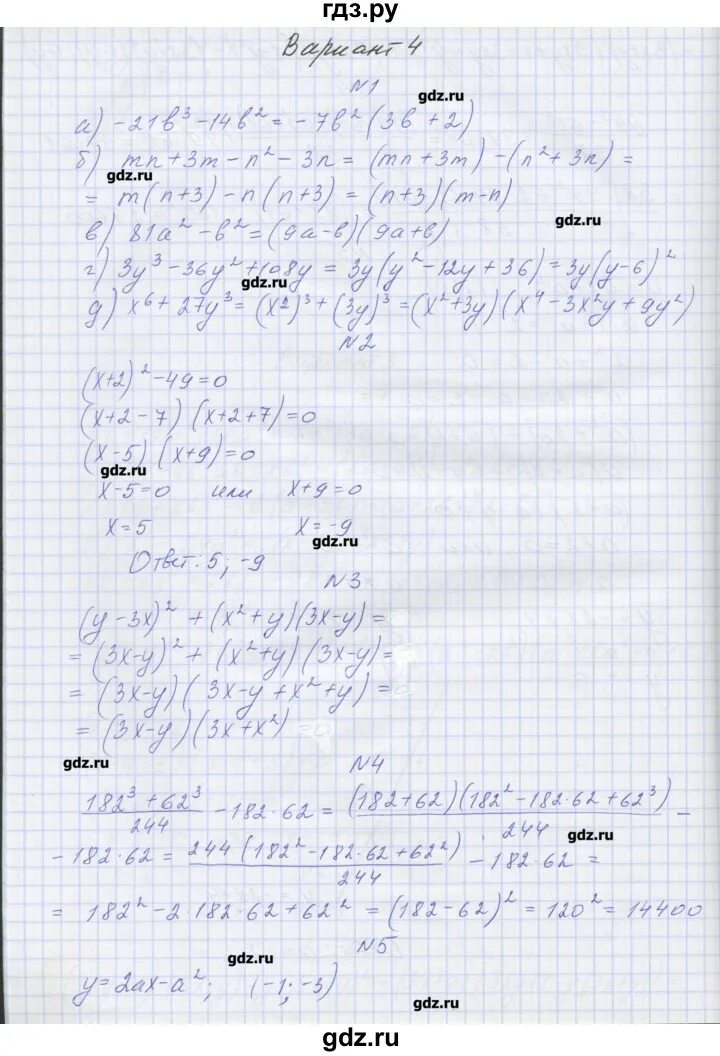 гдз.ру
Вариант 4
№1
gdz.ru
а) -21в³-14в² = -7в²(3в+2)
б) mn+3m-n²-3n = (mn+3m)-(n²+3n) =
gdz.ru
= m(n+3)-n(n+3) = (n+3)(m-n)
gdz.ru
в) 81а²-в²=(9а-в)(9а+в)
г) 3y³-36y²+108y = 3y(y²-12y+36)=3y(y-6)²
gdz.ru
д) x⁶+27y³=(x2)³+(3y)³=(x²+3y)(x⁴-3x²y+9y²)
№2
(x+2)²-49=0
(x+2-7)(x+2+7)=0
(x-5)(x+9)=0
gdz.ru
x-5=0 или x+9=0
x=5 x=-9
gdz.ru
Ответ: 5; -9
№3
(y-3x)²+(x²+y)(3x-y)=
=(3x-y)²+(x²+y)(3x-y)=
=(3x-y)(3x-y+x²+y)=
=(3x-y)(3x+x²)
gdz.ru
№4
182³+62³/244 -182·62 = (182+62)(182²-182·62+62³)/244 -
gdz.ru
-182·62 = 244(182²-182·62+62²)/244 -182·62 =
= 182²-2·182·62+62² = (182-62)² = 120² = 14400
№5
gdz.ru
y=2ax-a²; (-1;-3)
gdz.ru
gdz.ru